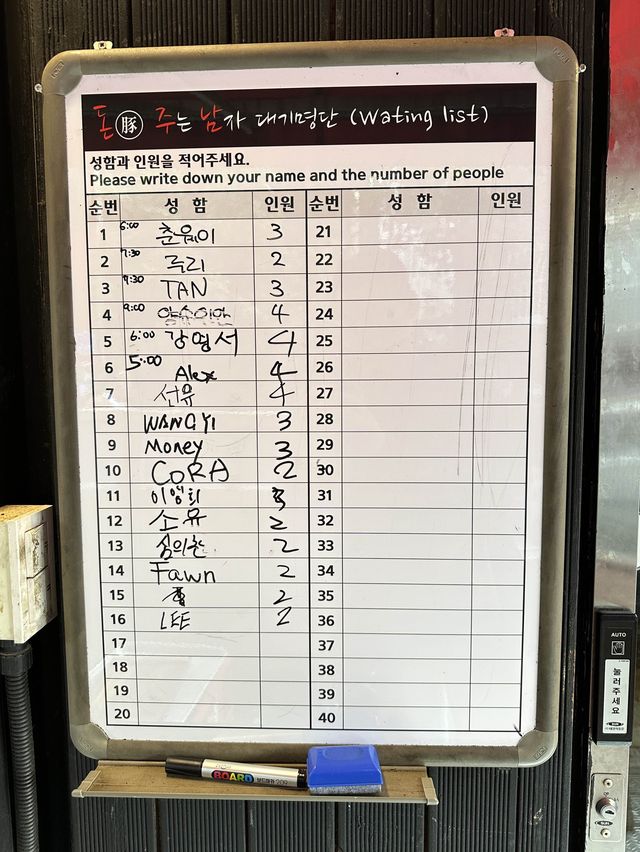 돈 豚 주는 남자 대기명단 (Wating list)
성함과 인원을 적어주세요.
Please write down your name and the number of people
순번 성 함 인원 순번 성 함 인원
1 6:00 춘웜이 3 21
2 7:30 루리 2 22
3 9:30 TAN 3 23
4 9:00 4 24
5 6:00 강영서 4 25
6 5:00 Alex 4 26
7 선유 4 27
8 WANGYI 3 28
9 Money 3 29
10 CORA 2 30
11 이영희 31
12 소유 2 32
13 심의찬 2 33
14 Fawn 2 34
15 2 35
16 LEE 2 36
17 37
18 38
19 39
20 40
BOARD
AUTO
눌러주세요